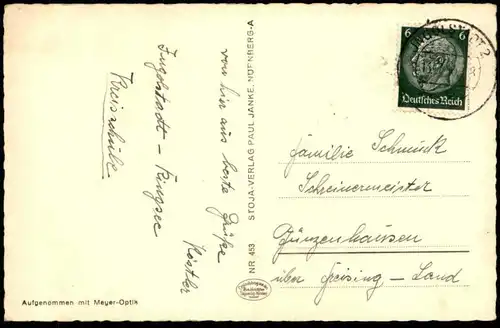 von hier aus beste Grüße
Kostler
Ingolstadt - Ringsee
Kreisschule
Aufgenommen mit Meyer-Optik
NR 453 STOJA-VERLAG PAUL JANKE, NÜRNBERG-A
6 6
Deutsches Reich
INGOLSTADT 2
Familie Schmuck
Schreinermeister
Günzenhausen
über Freising - Land